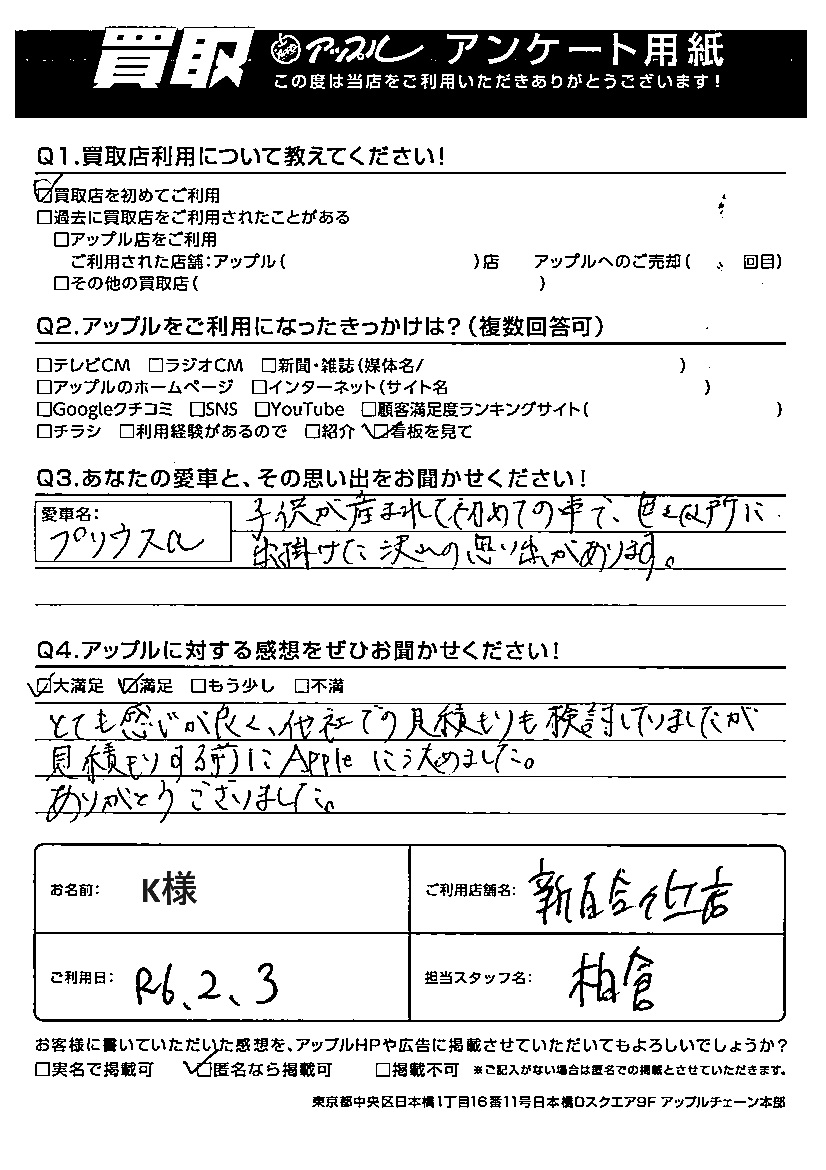 買取 アップル アンケート用紙
この度は当店をご利用いただきありがとうございます!
Q1.買取店利用について教えてください!
☑買取店を初めてご利用
□過去に買取店をご利用されたことがある
□アップル店をご利用
ご利用された店舗:アップル( )店 アップルへのご売却( 回目)
□その他の買取店( )
Q2.アップルをご利用になったきっかけは?(複数回答可)
□テレビCM □ラジオCM □新聞・雑誌(媒体名/ )
□アップルのホームページ □インターネット(サイト名 )
□Googleクチコミ □SNS □YouTube □顧客満足度ランキングサイト( )
□チラシ □利用経験があるので □紹介 ☑看板を見て
Q3.あなたの愛車と、その思い出をお聞かせください!
愛車名: プリウスα
子供が産まれて初めての車で、色々な所に
出掛けた沢山の思い出があります。
Q4.アップルに対する感想をぜひお聞かせください!
☑大満足 ☑満足 □もう少し □不満
とても感じが良く、他社での見積もりも検討していましたが
見積もりする前にAppleに決めました。
ありがとうございました。
お名前: K様
ご利用店舗名: 新百合ヶ丘店
ご利用日: R6、2、3
担当スタッフ名: 柏倉
お客様に書いていただいた感想を、アップルHPや広告に掲載させていただいてもよろしいでしょうか?
□実名で掲載可 ☑匿名なら掲載可 □掲載不可 ※ご記入がない場合は匿名での掲載とさせていただきます。
東京都中央区日本橋1丁目16番11号日本橋Dスクエア9F アップルチェーン本部